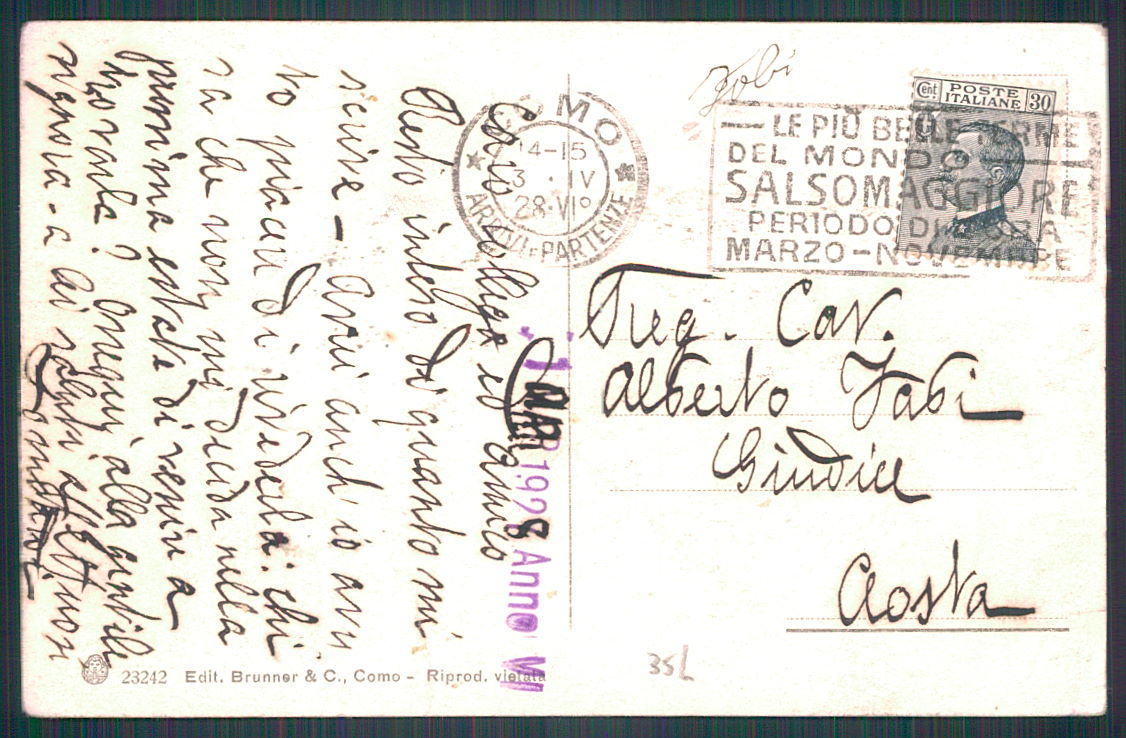 Caro collega ed amico
Resto inteso di quanto mi
scrive - Avrei anch'io avu
to piacere di vederla. Chi
sa che non mi decida nella
prossima estate di venire a
trovarla? Ossequi alla gentile
signora - a Lei saluti affettuosi
COMO
14-15
3 · IV
28·VI°
ARRIVI E PARTENZE
Cent POSTE ITALIANE 30
— LE PIÙ BELLE TERME
DEL MONDO —
SALSOMAGGIORE
PERIODO DI CURA
MARZO - NOVEMBRE
Cav.
Alberto Fabi
Giudice
Aosta
MAR 1928 Anno VI
23242 Edit. Brunner & C., Como - Riprod. vietata
35L